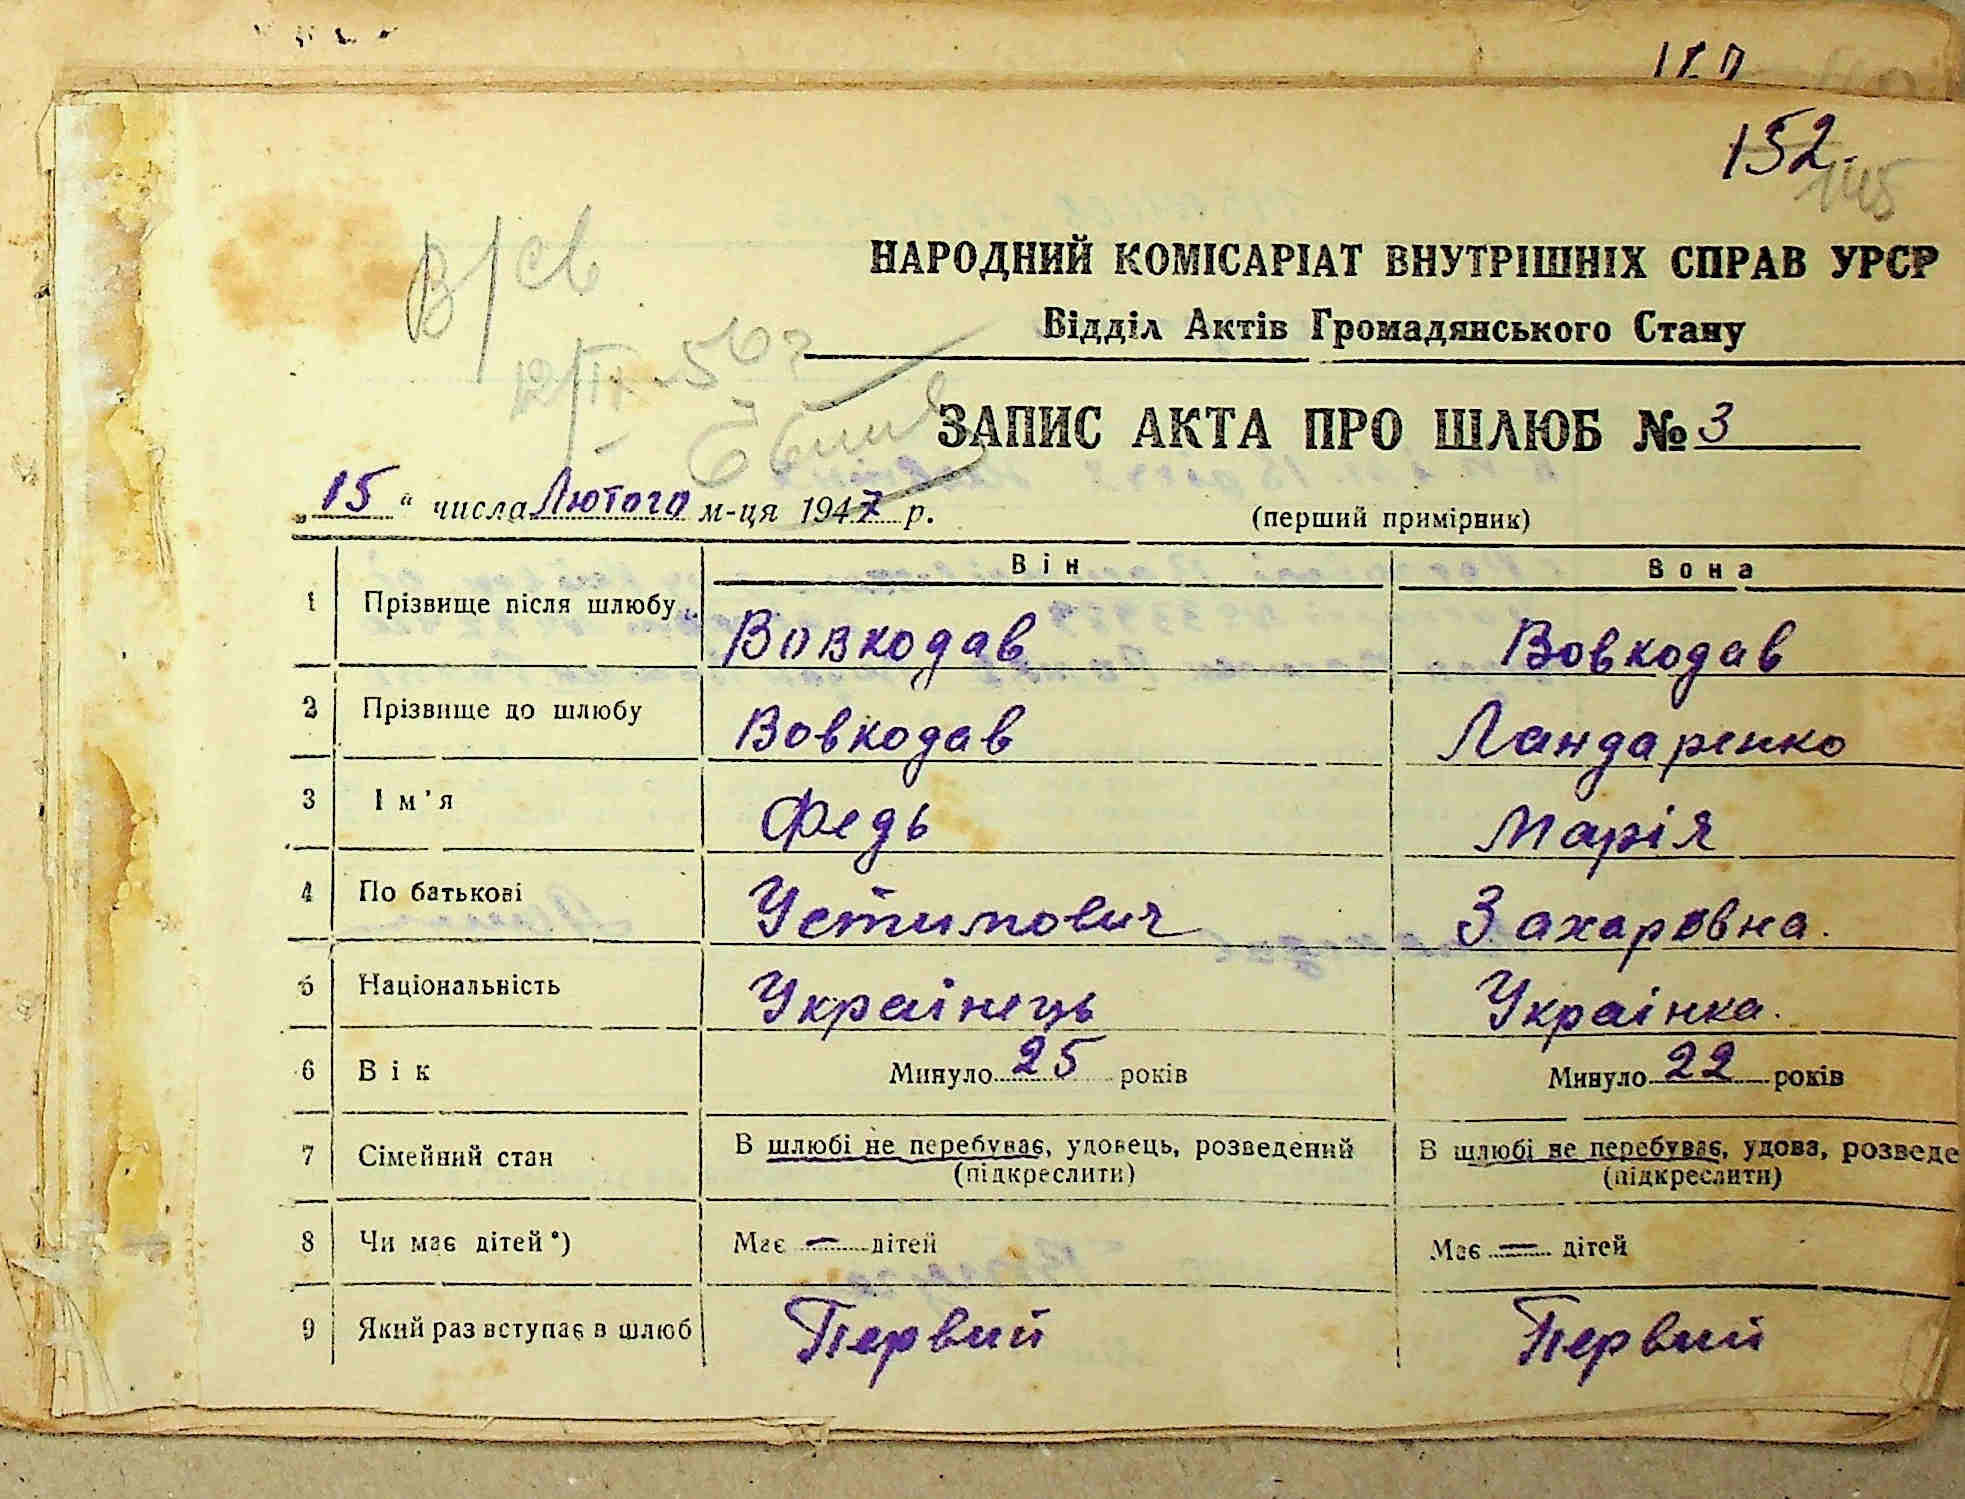 152.
145
НАРОДНИЙ КОМІСАРІАТ ВНУТРІШНІХ СПРАВ УРСР
Відділ Актів Громадянського Стану
ЗАПИС АКТА ПРО ШЛЮБ № 3
„15“ числа Лютого м-ця 1947 р.
(перший примірник)
Він Вона
1 Прізвище після шлюбу Вовкодав Вовкодав
2 Прізвище до шлюбу Вовкодав Ландаренко
3 Ім'я Федь Марія
4 По батькові Устимович Захаровна.
5 Національність Украінець Украінка.
6 Вік Минуло 25 років Минуло 22 років
7 Сімейний стан В шлюбі не перебуває, удовець, розведений В шлюбі не перебуває, удова, розведе
(підкреслити) (підкреслити)
8 Чи має дітей*) Має — дітей Має — дітей
9 Який раз вступає в шлюб Первий Первий